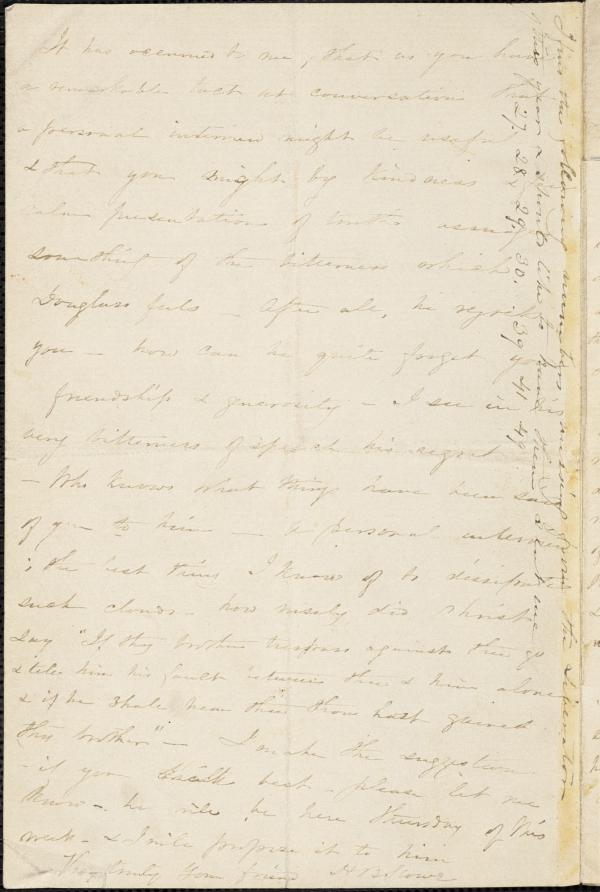 It has occurred to me, that as you have
a remarkable tact at conversation that
a personal interview might be useful
& that you might by kindness &
calm presentation of truths assuage
something of the bitterness which
Douglass feels — After all, he regrets
you — how can he quite forget your
friendship & generosity — I see in his
very bitterness of speech his regret
— Who knows what things have been said
of you to him — a personal interview
is the best thing I know of to dissipate
such clouds — how wisely did Christ
say "If thy brother trespass against thee go
& tell him his fault between thee & him alone
& if he shall hear thee thou hast gained
thy brother" — I make the suggestion
— if you think best — please let me
know — he will be here Thursday of this
week — & I will propose it to him
Very truly Your friend H B Stowe
I miss the following numbers missing from the Liberator
of this year & should like to have them sent me
27. 28. 29. 30. 39 41 49